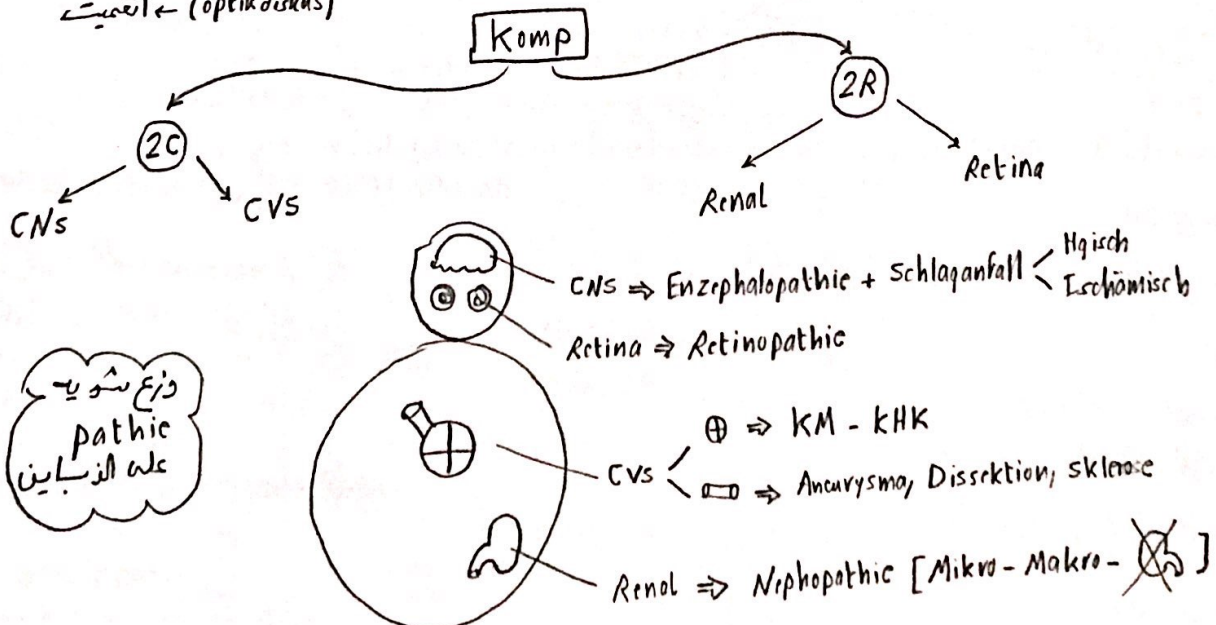 (optikdiskus)
Komp
2C
2R
CNs
CVS
Renal
Retina
CNS ⇒ Enzephalopathie + Schlaganfall < Hgisch
Ischämisch
Retina ⇒ Retinopathie
وزع شوية
pathie
على الزباين
CVS < ⊕ ⇒ KM - KHK
⇒ Aneurysma, Dissektion, Sklerose
Renal ⇒ Nephopathie [Mikro - Makro - ]